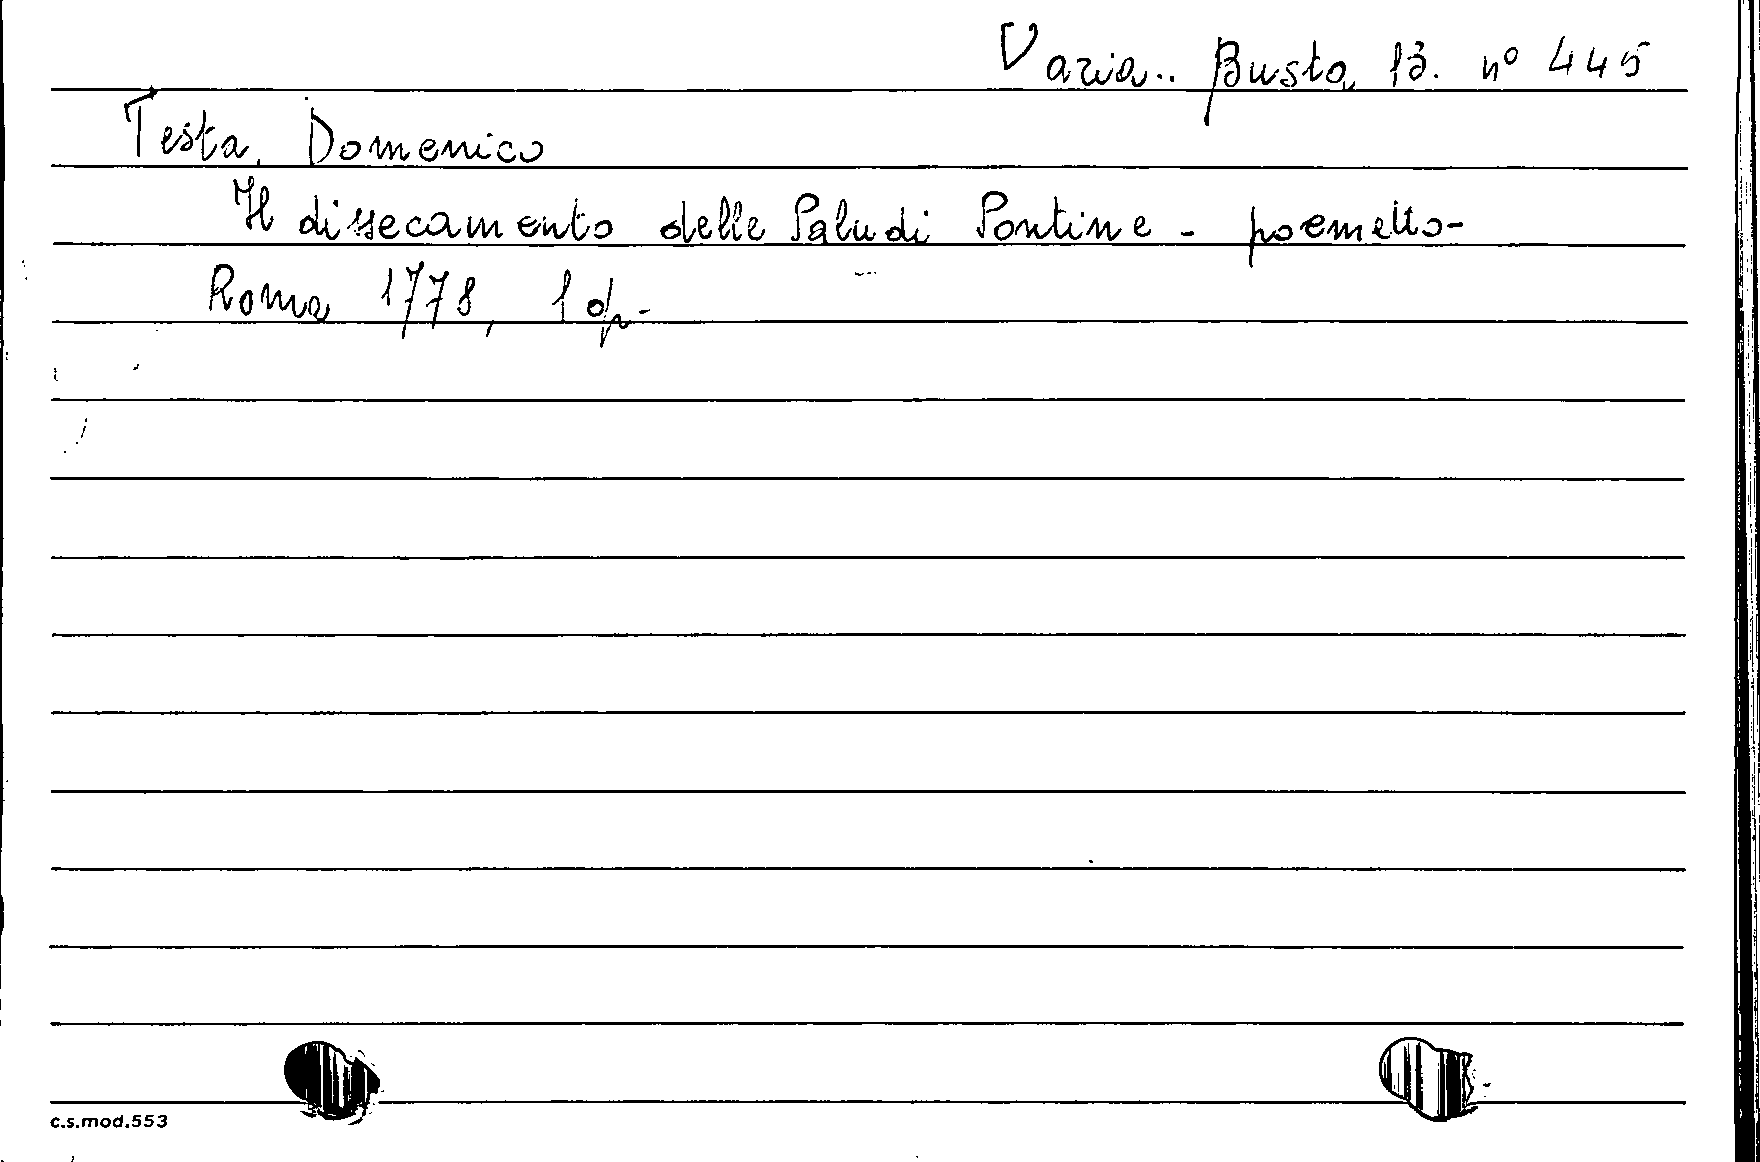 Varia.. Busta 13. n° 445
Testa, Domenico
Il dissecamento delle Paludi Pontine - poemetto-
Roma 1778, 1 op.
c.s.mod.553